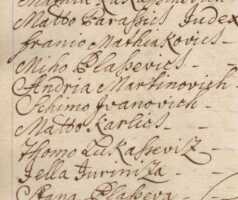 Matto Barassius Judex
Franio Mathiakovics -
Miho Plassevics -
Andria Martinovich -
Schimo Ivanovich -
Matto Karlics -
Thomo Lukassevitz -
Jella Jurinitza -
Stana Plasseva -